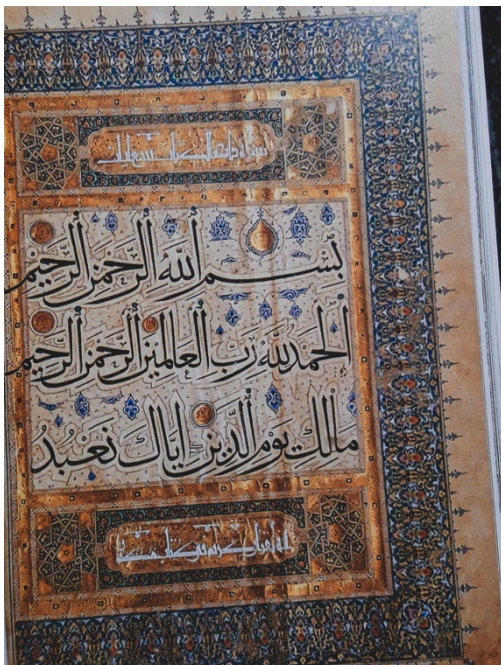 بِسْمِ ٱللَّهِ ٱلرَّحْمَٰنِ ٱلرَّحِيمِ
ٱلْحَمْدُ لِلَّهِ رَبِّ ٱلْعَالَمِينَ ٱلرَّحْمَٰنِ ٱلرَّحِيمِ
مَالِكِ يَوْمِ ٱلدِّينِ إِيَّاكَ نَعْبُدُ